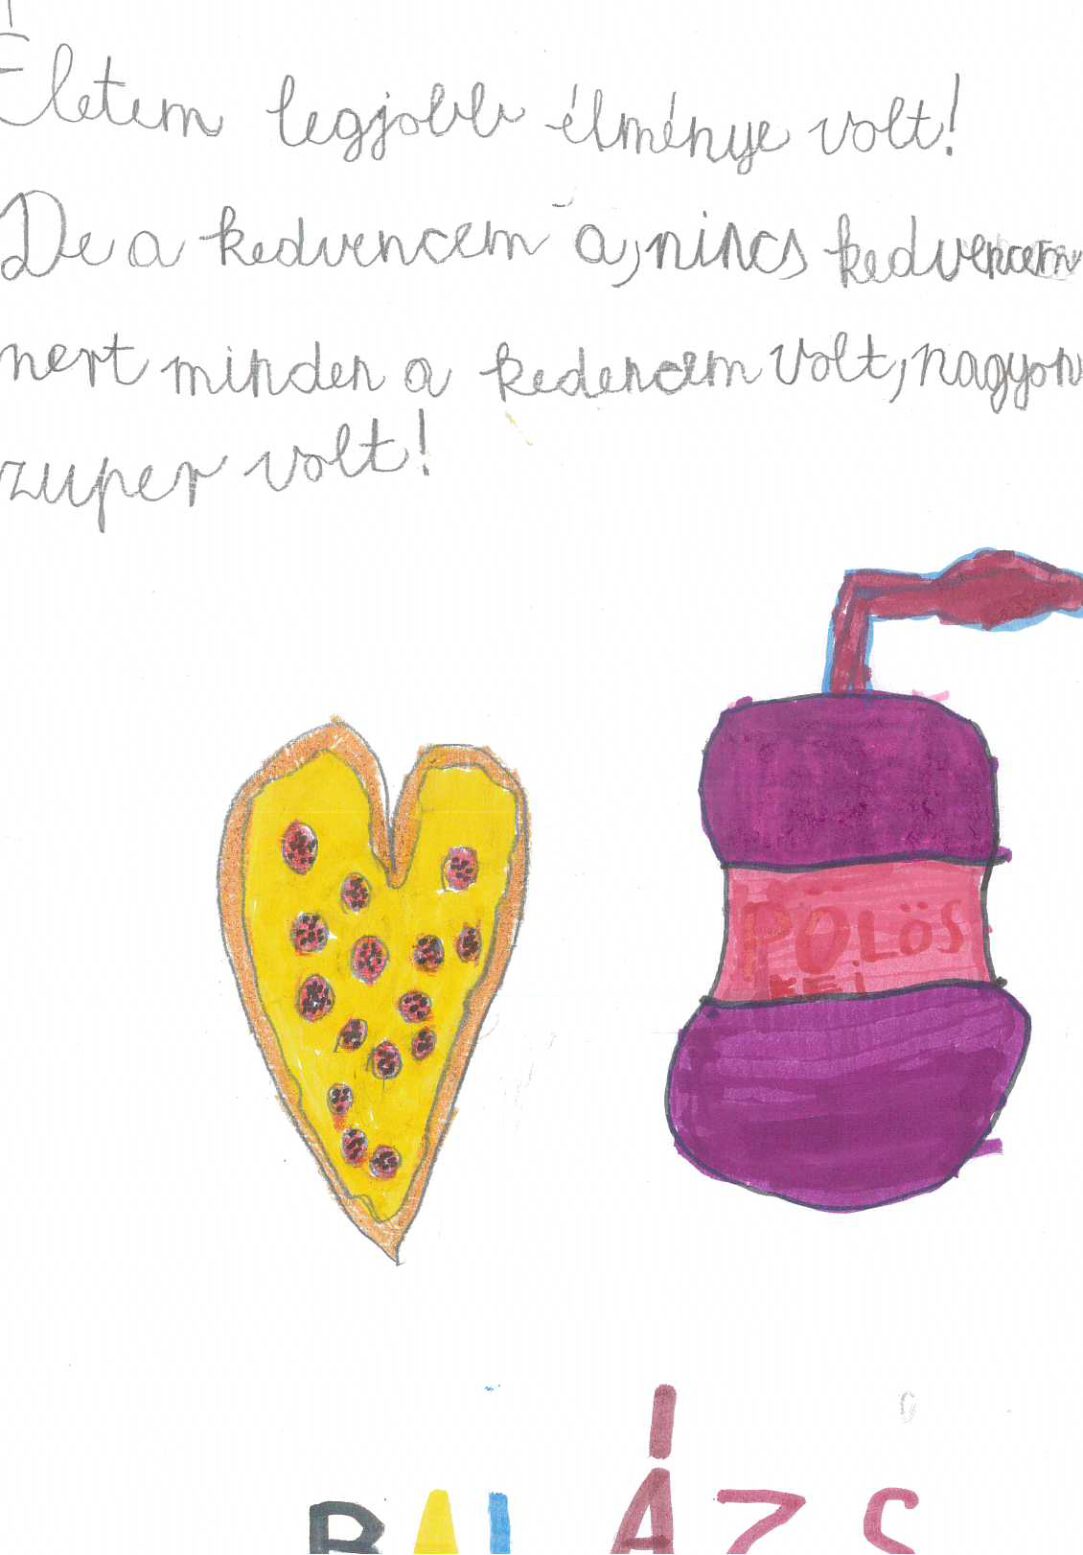 Életem legjobb élménye volt!
De a kedvencem a, nincs kedvencem
mert minden a kedencem volt, nagyon
zuper volt!
POLÖS
KEi
BALÁZS